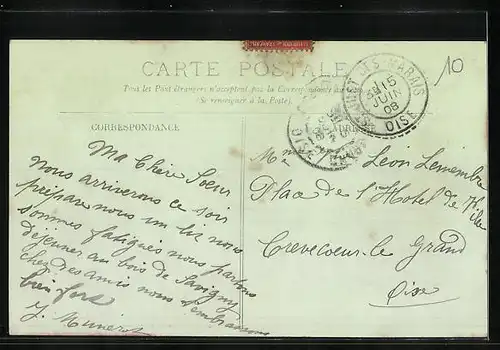 CARTE POSTALE
Tous les Pays étrangers n'acceptent pas la Correspondance au
(Se renseigner à la Poste)
10
15
JUIN
08
OISE
CORRESPONDANCE
Ma Chère Soeur
nous arriverons ce soir
prépare nous un lit nous
sommes fatigués nous partons
déjeuner au bois de Savigny
chez des amis nous t'embrassons
bien fort
Mme Leon
Place de l'Hotel de Ville
Crevecoeur le Grand
Oise